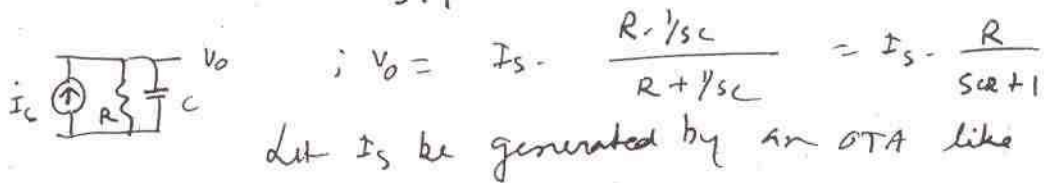 i_s R C V_o ; V_o = I_s · (R · 1/sc) / (R + 1/sc) = I_s · R / (SCR + 1)
Let I_s be generated by an OTA like